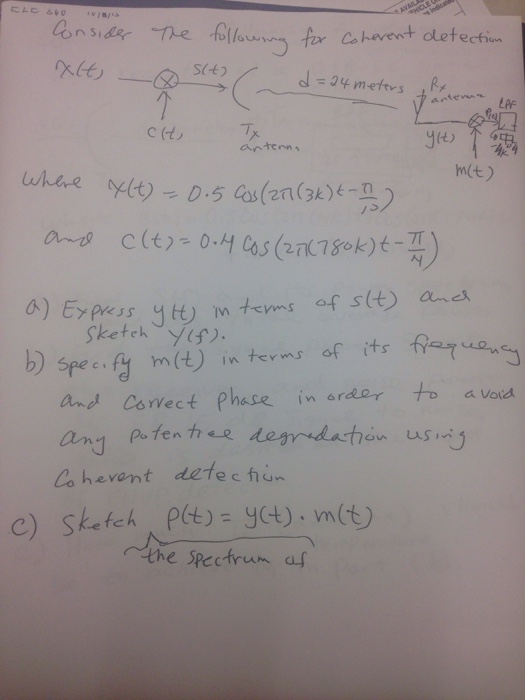 CLC 560 10/8/10
Consider the following for coherent detection
x(t) s(t) d = 24 meters Rx antenna LPF
c(t) Tx antenna y(t) P(t) -4k 4k
m(t)
where x(t) = 0.5 Cos(2π(3k)t - π/12)
and c(t) = 0.4 Cos(2π(780k)t - π/4)
a) Express y(t) in terms of s(t) and
sketch Y(f).
b) specify m(t) in terms of its frequency
and correct phase in order to avoid
any potential degradation using
Coherent detection
c) Sketch p(t) = y(t) . m(t)
the spectrum of